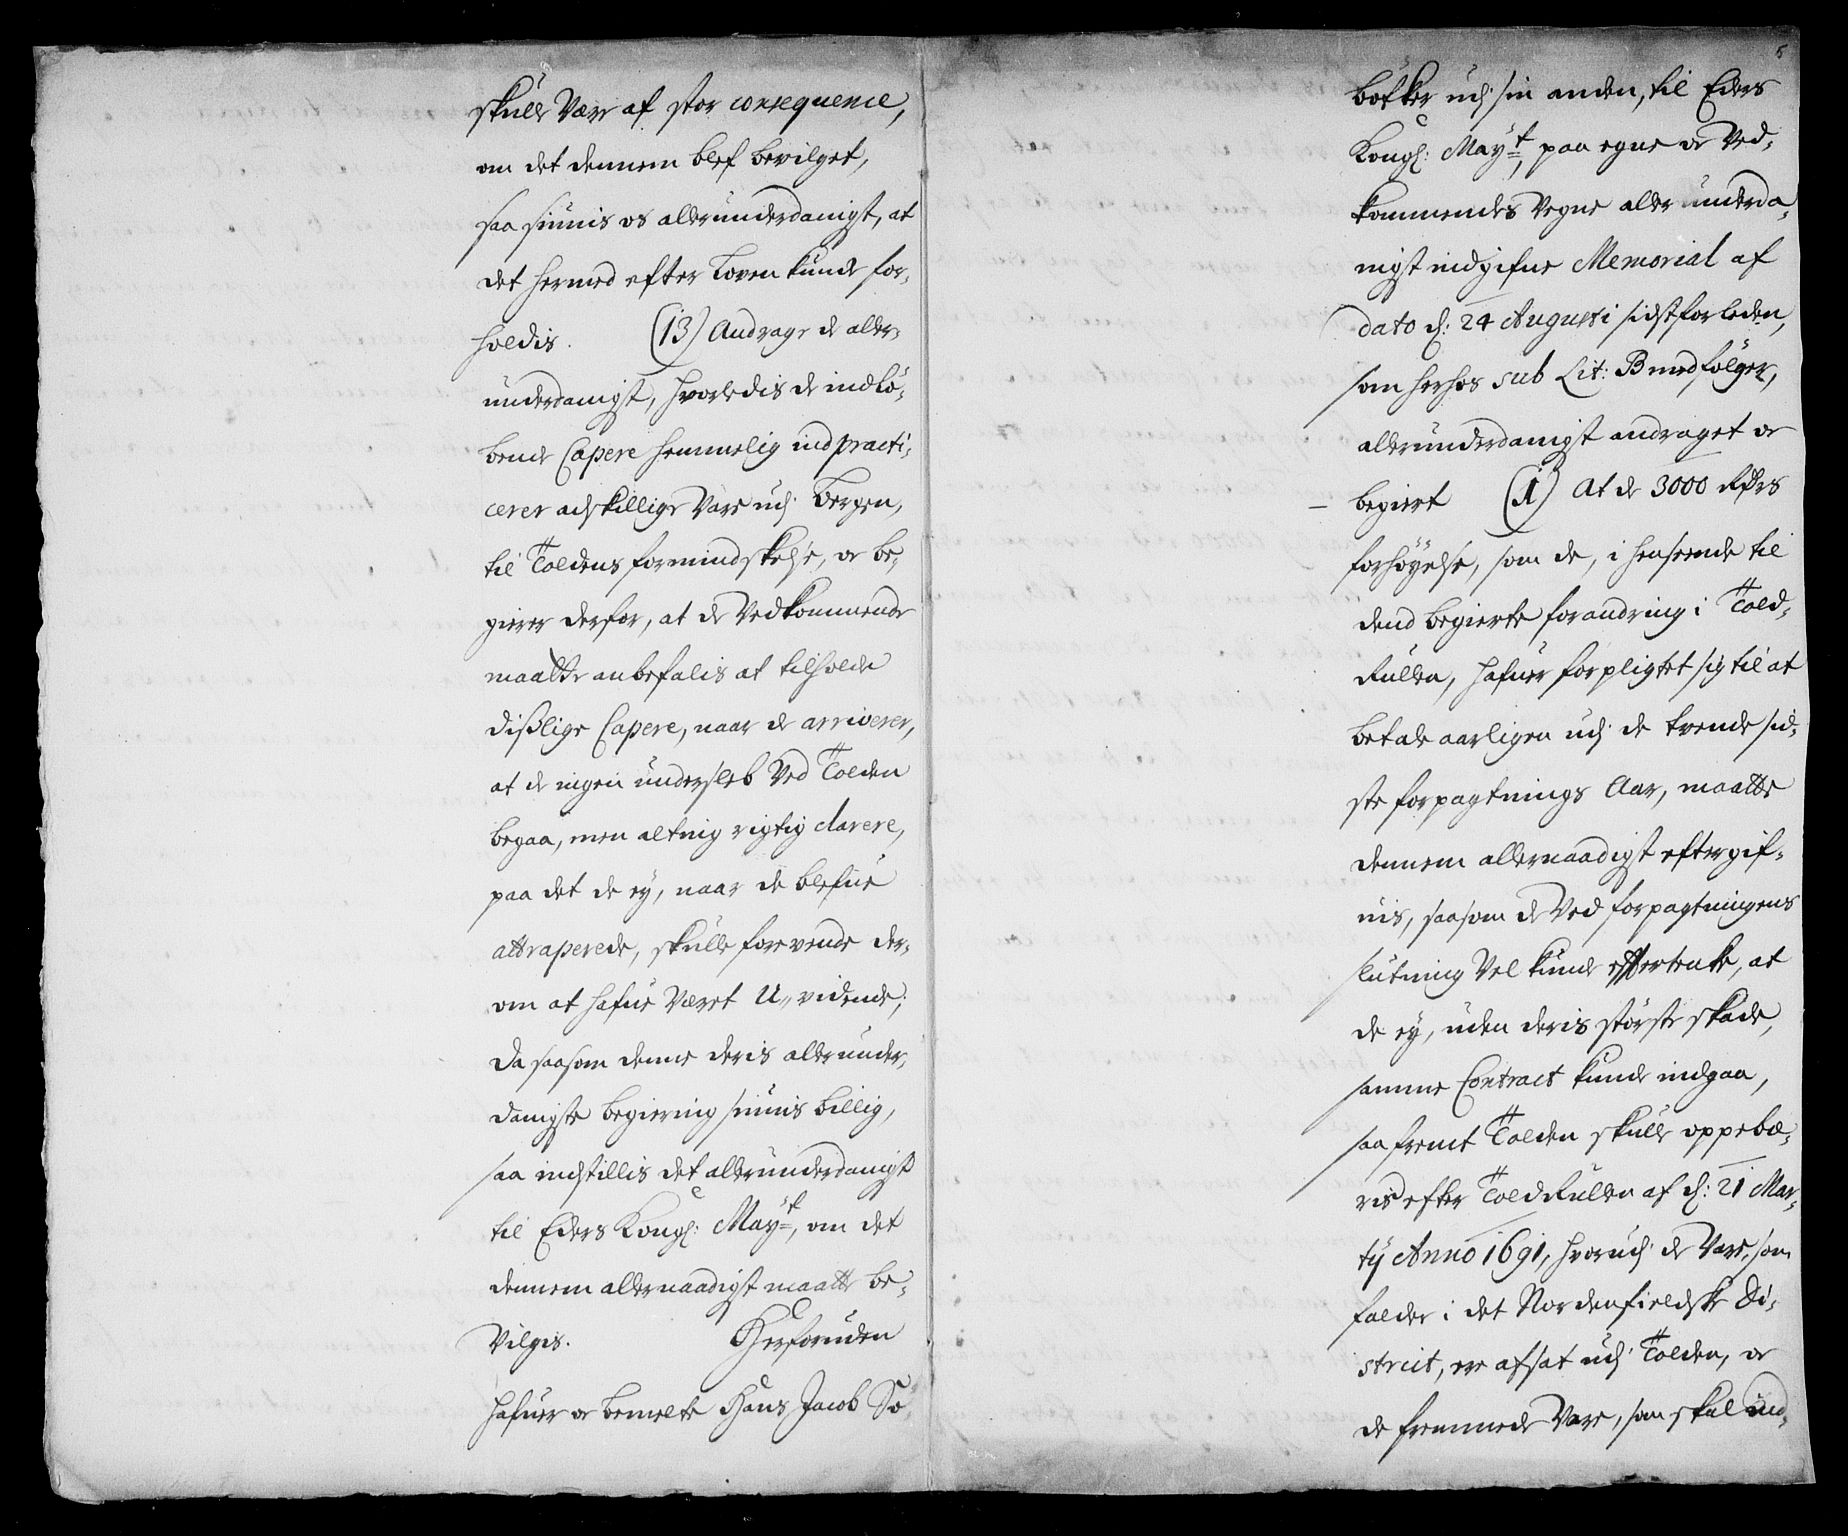 skulle Være af stor consequence,
om det dennem blef bevilget,
saa siunis os allerunderdanigst, at
det hermed efter Loven kunde for-
holdis. (13) Andrage de aller-
underdanigst, hvorledis de indlö-
bende Capere hemmelig ind practi-
cerer adskillige Vare udj Bergen,
til Toldens formindskelse, oc be-
gierer derfor, at de Vedkommende
maatte anbefalis at tilholde
dißlige Capere, naar de arriverer,
at de ingen undersleb Ved Tolden
begaa, men alting rigtig clarere,
paa det de ey, naar de blefue
attraperede, skulle forevende der-
om at hafue Været U-vidende;
Da saasom denne deris allerunder-
danigste begiering siunis billig,
saa indstillis det allerunderdanigst
til Eders Kongl: Mayt, om det
dennem allernaadigst maatte be-
Vilgis. Herforuden
hafuer oc bemelte Hans Jacob Sö-
5
bötker udj sin anden, til Eders
Kongl: Mayt, paa egne oc Ved-
kommendes Vegne allerunderda-
nigst indgifne Memorial af
dato d: 24 Augusti sidstforleden,
som herhos sub Lit: B medfölger,
allerunderdanigst andraget oc
begiert (1) At de 3000 Rdrs
forhöyelse, som de, i henseende til
dend begierte forandring i Told-
Rullen, hafuer forpligtet sig til at
betale aarligen udj de tvende sid-
ste forpagtnings Aar, maatte
dennem allernaadigst eftergif-
nis, saasom de Ved forpagtningens
slutning Vel kunde eftertenke, at
de ey, uden deris störste skade,
samme Contract kunde indgaa,
saafremt Tolden skulle oppebæ-
ris efter ToldRullen af d: 21 Mar-
ty Anno 1691, hvorudj de Vare, som
falder i det Nordenfieldske Di-
strict, ere afsat udj Tolden, oc
de fremmede Vare, som skal ind-